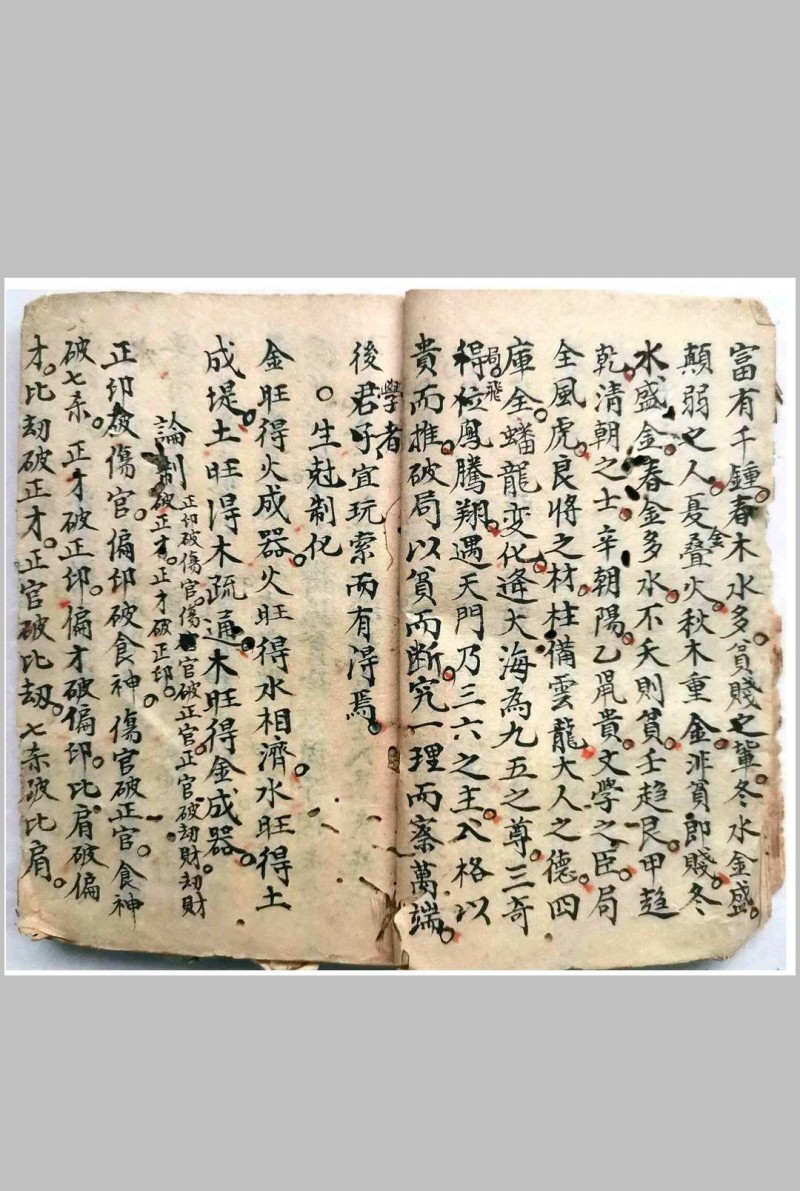 富有千鍾。春木水多。貧賤之輩。冬水金盛。
顛弱之人。夏金疊火。秋木重金。非貧即賤。冬
水盛金。春金多水。不夭則貧。壬趋艮甲趋
乾。清朝之士。辛朝陽。乙鼠貴。文學之臣。局
全風虎。良將之材。柱備雲龍。大人之德。四
庫全。蟠龍变化。逢大海為九五之尊。三奇
得位局。飛鳳騰翔。遇天門乃三六之主。入格以
貴而推。破局以貧而断。究一理而察萬端。
後學君子者宜玩索而有得焉。
○生尅制化
金旺得火成器。火旺得水相濟。水旺得土
成堤。土旺得木疏通。木旺得金成器。
論制 正印破傷官。傷官破正官。正官破劫財。劫財
破正才。正才破正印。
正印破傷官。偏印破食神。傷官破正官。食神
破七杀。正才破正印。偏才破偏印。比肩破偏
才。比劫破正才。正官破比劫。七杀破比肩。